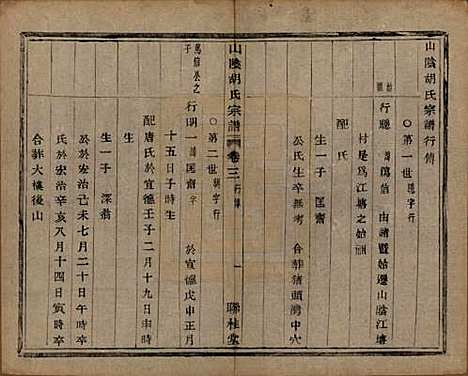 山陰胡氏宗譜行傳
始祖
○第一世聰字行
行聰 諱萬信 由諸暨始遷山陰江塘
村是為江塘之始祖
配氏
生一子 匡齋
公氏生卒無考 合葬猪頭灣中穴
山陰胡氏宗譜 卷三 行傳 一 聯桂堂
○第二世明字行
萬信長之子
行明一 諱匡齋 字 於宣德戊申正月
十五日子時生
配唐氏於宣德壬子二月十九日申時
生一子 深翁
公於宏治己未七月二十日午時卒
氏於宏治辛亥八月十四日寅時卒
合葬大樓後山